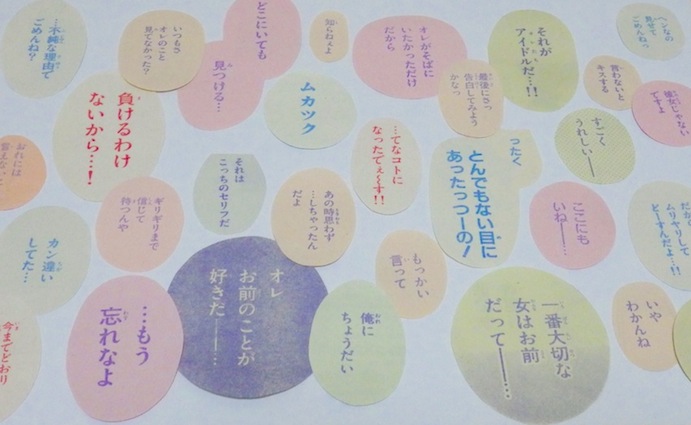 …不純な理由で
ごめんね?
いつもさ
オレのこと
見てなかった?
どこにいても
見つける…
知らねぇよ
オレがそばに
いたかっただけ
だから
最後にさっ
告白してみよう
かなっ
それが
アイドルだ…!!
言わないと
キスする
ヘンなの
見せて
ごめんねっ
彼女じゃない
ですよ
負けるわけ
ないから…!
ムカツク
…てなコトに
なったでぇ〜す!!
ったく
とんでもない目に
あったっつーの!
すごく
うれしい――
おれには
ギリギリまで
信じて
待つんや
それは
こっちのセリフだ
あの時思わず
…しちゃったん
だよ
もっかい
言って
ここにも
いね――
ムリヤリして
どーすんだよ…!!
カン違い
してた…
…もう
忘れなよ
オレ
お前のことが
好きだ――…
俺に
ちょうだい
一番大切な
女はお前
だって――…
いや
わかんね
今までどおり